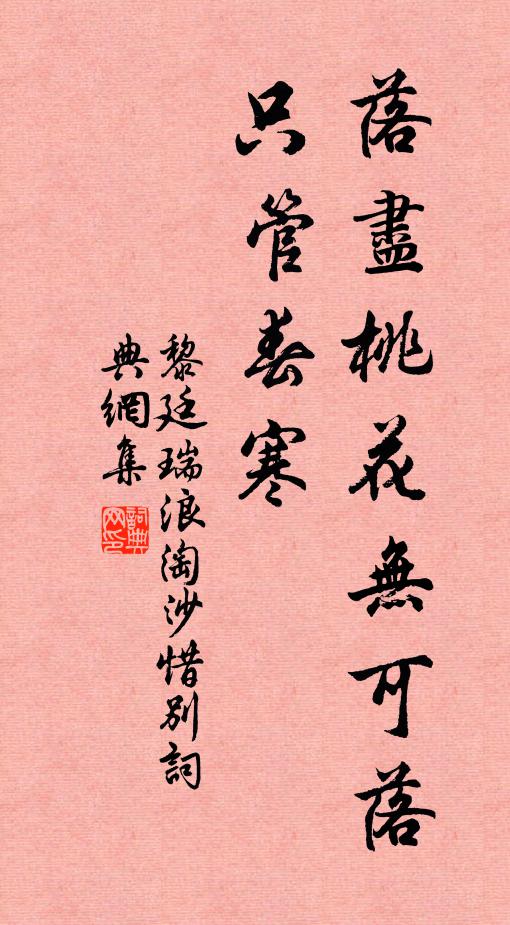 落盡桃花無可落
只管春寒
黎廷瑞浪淘沙惜別詞
典網集
詞典網印